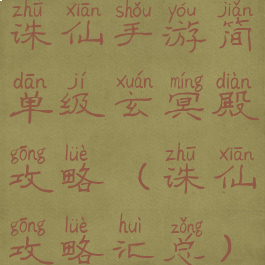 zhū xiān shǒu yóu jiǎn
诛仙手游简
dān jí xuán míng diàn
单级玄冥殿
gōng lüè zhū xiān
攻略（诛仙
gōng lüè huì zǒng
攻略汇总）